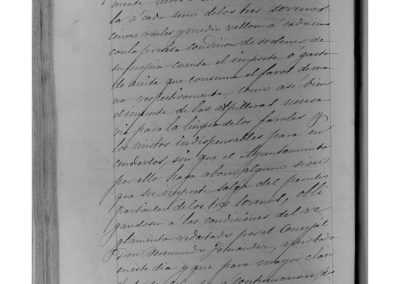 la á cada uno de los tres serenos
cinco reales y medio vellon á cada uno
con la precisa condicion de sostener de
su propia cuenta el importe ó gasto
de aceite que consuma el farol de ma
no respectivamente como asi bien
el importe de las
para la limpia de los faroles y
los mistos indispensables para en
cenderlos, sin que el Ayuntamiento
por ello haga abono alguno sino
que su importe salga del peculio
particular de los tres serenos, obli
gandose á las condiciones del re
glamento redactado por el Concejal
Don Bermundo Fernandez, aprobado
en este dia y que para mayor clari